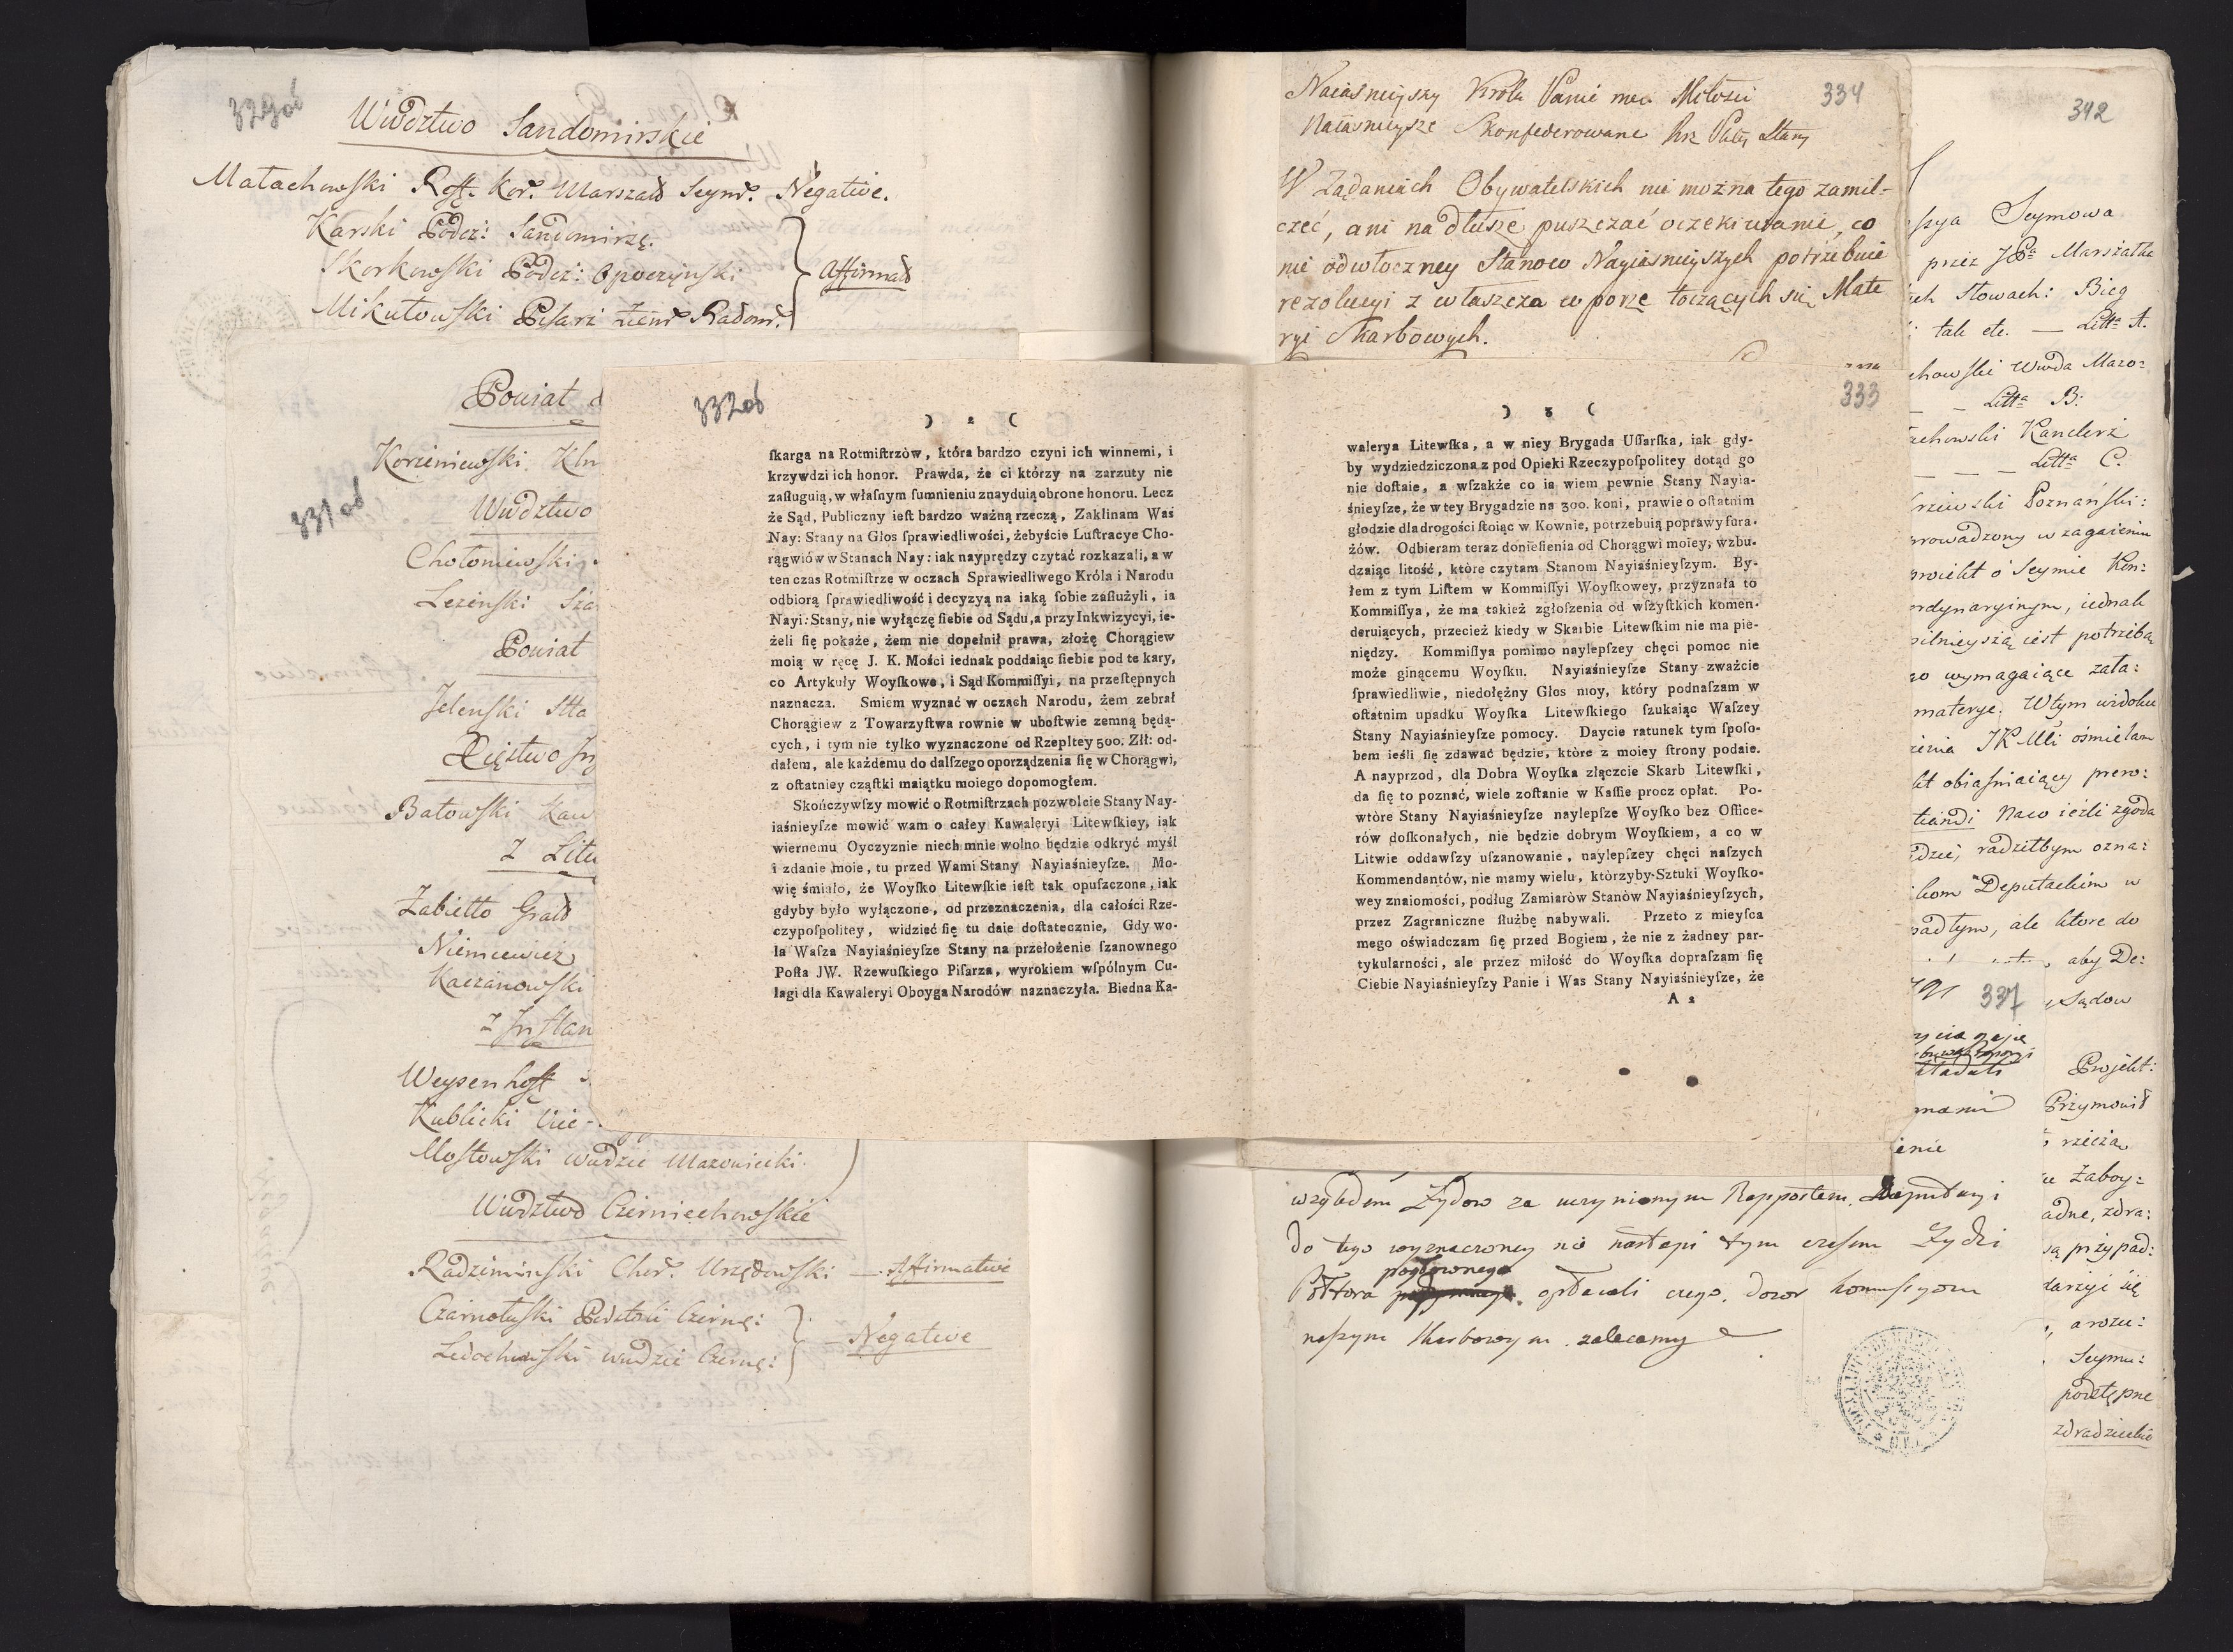 329ob
Wwdztwo Sandomirskie
Małachowski Reff. Kor. Marszałd Seym. Negative.
Karski Podcz: Sandomirz.
Skorkowski Podcz: Opoczyński
Mikułowski Pisarz Ziem. Radom.
Affirmad
331ob
Powiat
Korzeniewski
Wwdztwo
Chołoniewski
Lezenski
Powiat
Jelenski
Xięstwo
Batowski Kaw
Z Litw
Zabiełło Grad
Niemcewicz
Kaczanowski
z Inflan
Weysenhoff
Kublicki
Mostowski wwdzic Mazowiecki.
Wwdztwo Czerniechowskie
Radziminski Chor. Urzędowski — Affirmative
Czarnołuski Podstoli Czernie:
Ledochowski wwdzic Czernie:
Negative
332ob
) 2 (
ſkarga na Rotmiſtrzòw, która bardzo czyni ich winnemi, i
krzywdzi ich honor. Prawda, że ci którzy na zarzuty nie
zaſługuią, w właſnym ſumnieniu znayduią obrone honoru. Lecz
że Sąd, Publiczny ieſt bardzo ważną rzeczą, Zaklinam Was
Nay: Stany na Głos ſprawiedliwości, żebyście Luſtracye Cho-
rągwiów w Stanach Nay: iak nayprędzy czytać rozkazali, a w
ten czas Rotmiſtrze w oczach Sprawiedliwego Króla i Narodu
odbiorą ſprawiedliwość i decyzyą na iaką ſobie zaſłużyli, ia
Nayi: Stany, nie wyłączę ſiebie od Sądu, a przy Inkwizycyi, ie-
żeli ſię pokaże, żem nie dopełnił prawa, złożę Chorągiew
moią w ręcę J. K. Mości iednak poddaiąc ſiebie pod te kary,
co Artykuły Woyſkowe, i Sąd Kommiſſyi, na przeſtępnych
naznacza. Smiem wyznać w oczach Narodu, żem zebrał
Chorągiew z Towarzyſtwa rownie w uboſtwie zemną będą-
cych, i tym nie tylko wyznaczone od Rzepltey 500. Złł: od-
dałem, ale każdemu do dalſzego oporządzenia ſię w Chorągwi,
z oſtatniey cząſtki maiątku moiego dopomogłem.
Skończywſzy mowić o Rotmiſtrzach pozwolcie Stany Nay-
iaśnieyſze mowić wam o całey Kawaleryi Litewſkiey, iak
wiernemu Oyczyznie niech mnie wolno będzie odkryć myśl
i zdanie moie, tu przed Wami Stany Nayiaśnieyſze. Mo-
wię śmiało, że Woyſko Litewſkie ieſt tak opuſzczone, iak
gdyby było wyłączone, od przeznaczenia, dla całości Rze-
czypoſpolitey, widzieć ſię tu daie doſtatecznie, Gdy wo-
la Waſza Nayiaśnieyſze Stany na przełożenie ſzanownego
Poſła JW. Rzewuſkiego Piſarza, wyrokiem wſpólnym Cu-
łagi dla Kawaleryi Oboyga Narodów naznaczyła. Biedna Ka-
334
Naiasnieyszy Krolu Panie moy Miłosci
Naiasnieysze Skonfederowane Stany
W Ządaniach Obywatelskich nie można tego zamil-
czeć, ani na dłusze puszczać oczekiwanie, co
nie odwłoczney Stanow Nayiasnieyszych potrzebuie
rezolucyi z właszcza w porze toczących się Mate
ryi Skarbowych.
333
) 3 (
walerya Litewſka, a w niey Brygada Uſſarſka, iak gdy-
by wydziedziczona z pod Opieki Rzeczypoſpolitey dotąd go
nie doſtaie, a wſzakże co ia wiem pewnie Stany Nayia-
śnieyſze, że w tey Brygadzie na 300. koni, prawie o oſtatnim
głodzie dla drogości ſtoiąc w Kownie, potrzebuią poprawy fura-
żów. Odbieram teraz donieſienia od Chorągwi moiey, wzbu-
dzaiąc litość, które czytam Stanom Nayiaśnieyſzym. By-
łem z tym Liſtem w Kommiſſyi Woyſkowey, przyznała to
Kommiſſya, że ma takież zgłoſzenia od wſzyſtkich komen-
deruiących, przecież kiedy w Skarbie Litewſkim nie ma pie-
niędzy. Kommiſſya pomimo naylepſzey chęci pomoc nie
może ginącemu Woyſku. Nayiaśnieyſze Stany zważcie
ſprawiedliwie, niedołężny Głos moy, który podnaſzam w
oſtatnim upadku Woyſka Litewſkiego ſzukaiąc Waſzey
Stany Nayiaśnieyſze pomocy. Daycie ratunek tym ſpoſo-
bem ieśli ſię zdawać będzie, które z moiey ſtrony podaie.
A nayprzod, dla Dobra Woyſka złączcie Skarb Litewſki,
da ſię to poznać, wiele zoſtanie w Kaſſie procz opłat. Po-
wtòre Stany Nayiaśnieyſze naylepſze Woyſko bez Office-
rów doſkonałych, nie będzie dobrym Woyſkiem, a co w
Litwie oddawſzy uſzanowanie, naylepſzey chęci naſzych
Kommendantów, nie mamy wielu, którzyby Sztuki Woyſko-
wey znaiomości, podług Zamiaròw Stanòw Nayiaśnieyſzych,
przez Zagraniczne ſłużbę nabywali. Przeto z mieyſca
mego oświadczam ſię przed Bogiem, że nie z żadney par-
tykularności, ale przez miłość do Woyſka dopraſzam ſię
Ciebie Nayiaśnieyſzy Panie i Was Stany Nayiaśnieyſze, że
A 2
względem Zydow za uczynionym Rapportem Deputacyi
do tego wyznaczoney nie nastąpi tym czasem Zydzi
pogłownego
Połtora opłacali czego dozor kommissyom
naszym Skarbowym zalecamy
342
Seymowa
przez JP Marszałka
słowach: Bieg
tak etc. — Litta A.
Litta B:
Kanclerz
Litta C.
Poznański:
o Seymie Kon:
iednak
iest potrzeba
wymagaiące zała:
materye. Wtym widoku
JK Mci ośmielam
obiaśniaiący prero:
Naco ieżli zgoda
radziłbym ozna:
Deputackim w
ale ktore do
aby De:
Sądow
337
Projekt:
Przymowił
Zaboy:
zdra:
są przypad:
się
a rozu:
Seymu:
podstępne
zdradzieckie